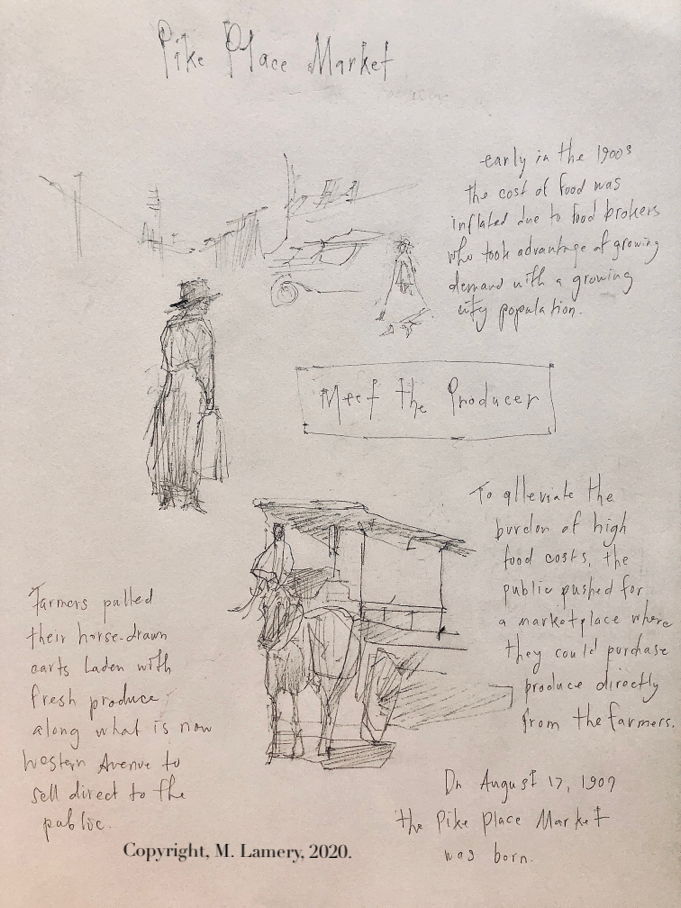 Pike Place Market
early in the 1900s
the cost of food was
inflated due to food brokers
who took advantage of growing
demand with a growing
city population.
Meet the Producer
To alleviate the
burden of high
food costs, the
public pushed for
a marketplace where
they could purchase
produce directly
from the farmers.
Farmers pulled
their horse-drawn
carts laden with
fresh produce
along what is now
Western Avenue to
sell direct to the
public.
On August 17, 1907
the Pike Place Market
was born.
Copyright, M. Lamery, 2020.